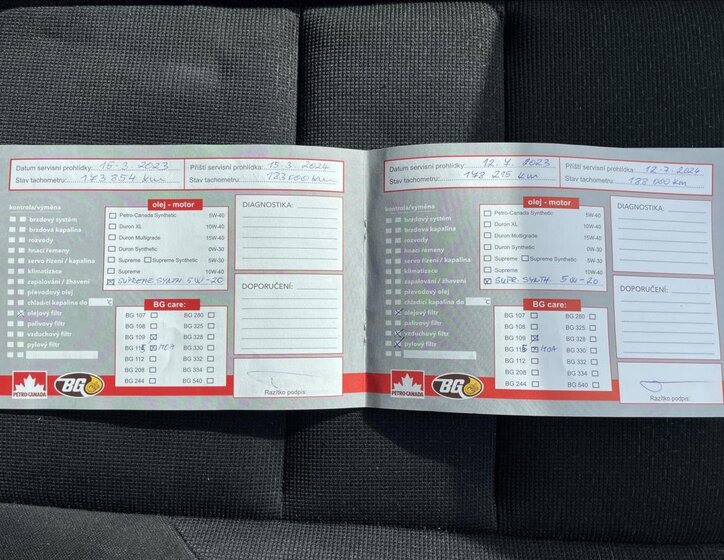 Datum servisní prohlídky: 15.3.2023
Příští servisní prohlídka: 15.3.2024
Stav tachometru: 173 854 km
Stav tachometru: 183 000 km
kontrola/výměna
brzdový systém
brzdová kapalina
rozvody
hnací řemeny
servo řízení / kapalina
klimatizace
zapalování / žhavení
převodový olej
chladící kapalina do °C
olejový filtr
palivový filtr
vzduchový filtr
pylový filtr
olej - motor
Petro-Canada Synthetic 5W-40
Duron XL 10W-40
Duron Multigrade 15W-40
Duron Synthetic 0W-30
Supreme Synthetic Supreme Synthetic 5W-30
Supreme 10W-40
SUPREME SYNTH. 5W-20
BG care:
BG 107 BG 280
BG 108 BG 325
BG 109 BG 328
BG 115 MOA BG 330
BG 112 BG 332
BG 208 BG 334
BG 244 BG 540
DIAGNOSTIKA:
DOPORUČENÍ:
Razítko podpis:
PETRO-CANADA
BG
Datum servisní prohlídky: 12.7.2023
Příští servisní prohlídka: 12.7.2024
Stav tachometru: 178 215 km
Stav tachometru: 188 000 km
kontrola/výměna
brzdový systém
brzdová kapalina
rozvody
hnací řemeny
servo řízení / kapalina
klimatizace
zapalování / žhavení
převodový olej
chladící kapalina do °C
olejový filtr
palivový filtr
vzduchový filtr
pylový filtr
olej - motor
Petro-Canada Synthetic 5W-40
Duron XL 10W-40
Duron Multigrade 15W-40
Duron Synthetic 0W-30
Supreme Synthetic Supreme Synthetic 5W-30
Supreme 10W-40
SUPR. SYNTH. 5W-20
BG care:
BG 107 BG 280
BG 108 BG 325
BG 109 BG 328
BG 115 MOA BG 330
BG 112 BG 332
BG 208 BG 334
BG 244 BG 540
DIAGNOSTIKA:
DOPORUČENÍ:
Razítko podpis:
PETRO-CANADA
BG